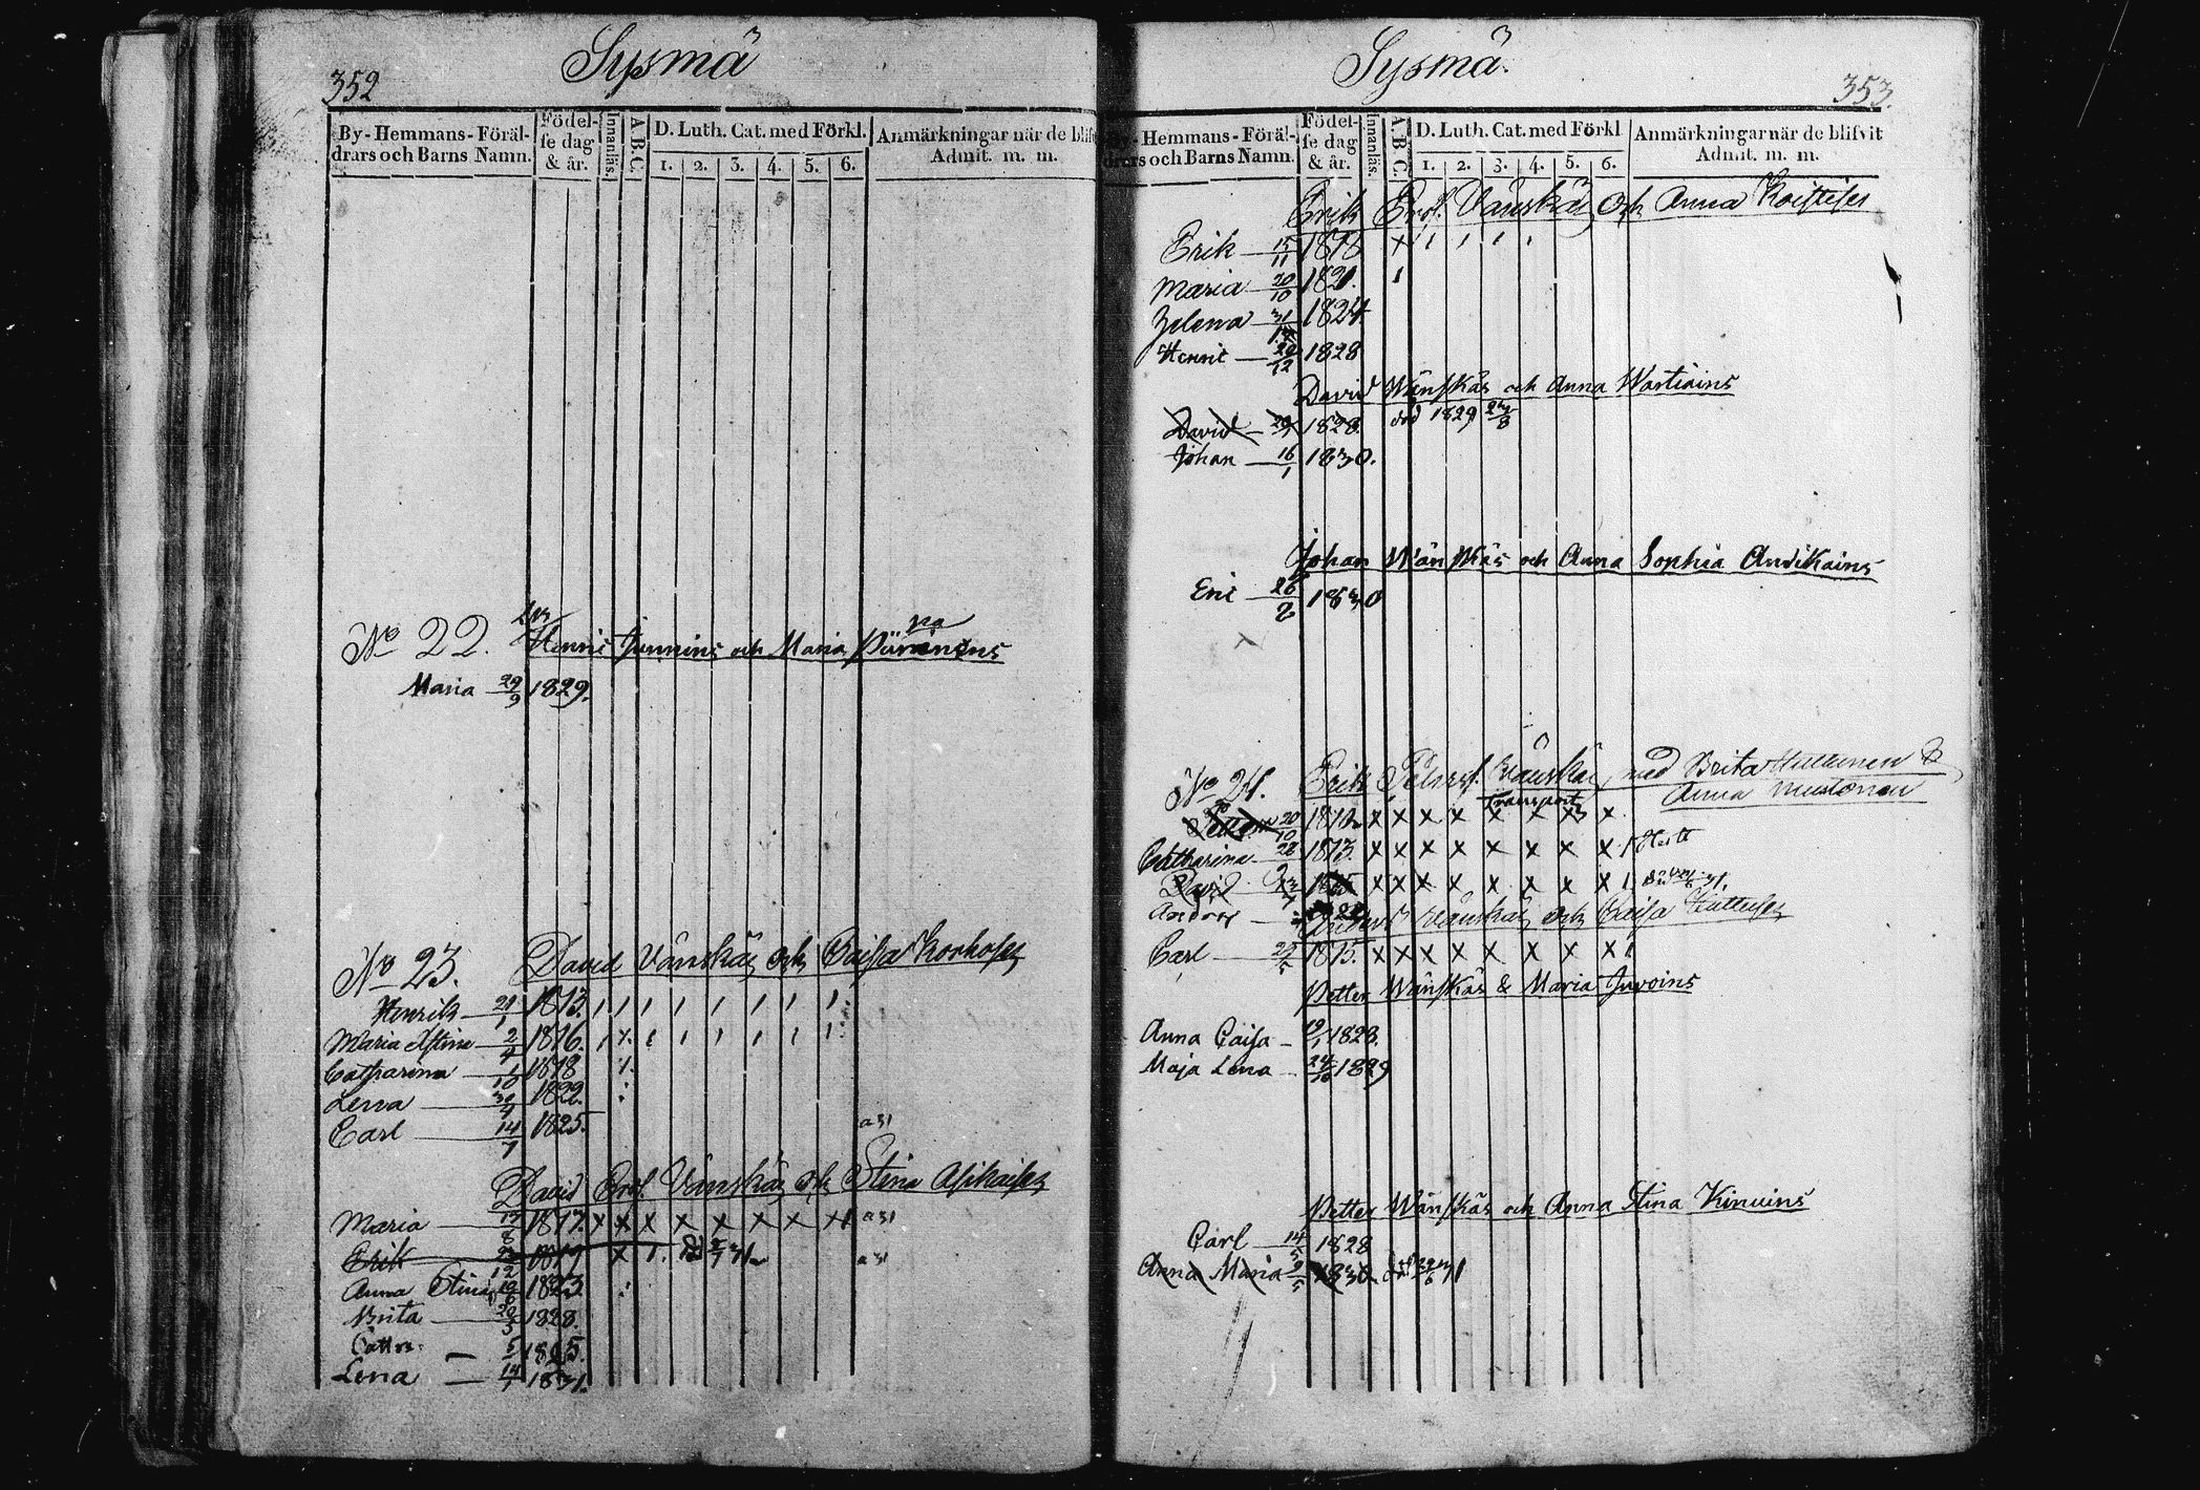 352
Sysmä
By-Hemmans-Föräl-
drars och Barns Namn.
Födel-
se dag
& år.
Innanläs.
A.B.C.
D. Luth. Cat. med Förkl.
1. 2. 3. 4. 5. 6.
Anmärkningar när de blifv
Admit. m. m.
No 22. Henric Junnins och Maria
Maria 29/9 1829.
No 23. David Vänskäs och Caisa Korhoses
Henrik 21/1 1813. / / / / / / / /
Maria Stina 2/4 1816. / x / / / / / /
Catharina 1/10 1818
Lena 30/4 1822.
Carl 14/7 1825. a 31
David Er.s. Vänskäs och Stina Asikaises
Maria 17/8 1817. x x x x x x x x a 31
Erik 1819 x 1. a 31
Anna Stina 1823.
Brita 1828.
Cathr. 1825.
Lena 14/7 1831.
353.
Sysmä.
By-Hemmans-Föräl-
drars och Barns Namn.
Födel-
se dag
& år.
Innanläs.
A.B.C.
D. Luth. Cat. med Förkl
1. 2. 3. 4. 5. 6.
Anmärkningar när de blifvit
Admit. m. m.
Erik Ers. Vänskäs och Anna Koistises
Erik 15/11 1818 x / / / /
Maria 20/10 1821. /
Helena 31/12 1824.
Henric 20/12 1828
David Wänskäs och Anna Wartiains
David 1828. död 1829
Johan 16/1 1830.
Johan Wänskäs och Anna Sophia Andikains
Eric 26/2 1830
No 24. Erik Vänskä, med Brita Huttunen &
Anna Mustonen
Transport
20/10 1810 x x x x x x x x
Catharina 1813. x x x x x x x x /
David x x x x x x x x 1
Anders
Anders Vänskäs och Caisa
Carl 1815. x x x x x x x x 1
Petter Wänskäs & Maria Juvoins
Anna Caisa 19/1 1828.
Maja Lena 24/10 1829
Petter Wänskäs och Anna Stina Kinuins
Carl 14/5 1828
Anna Maria 1830